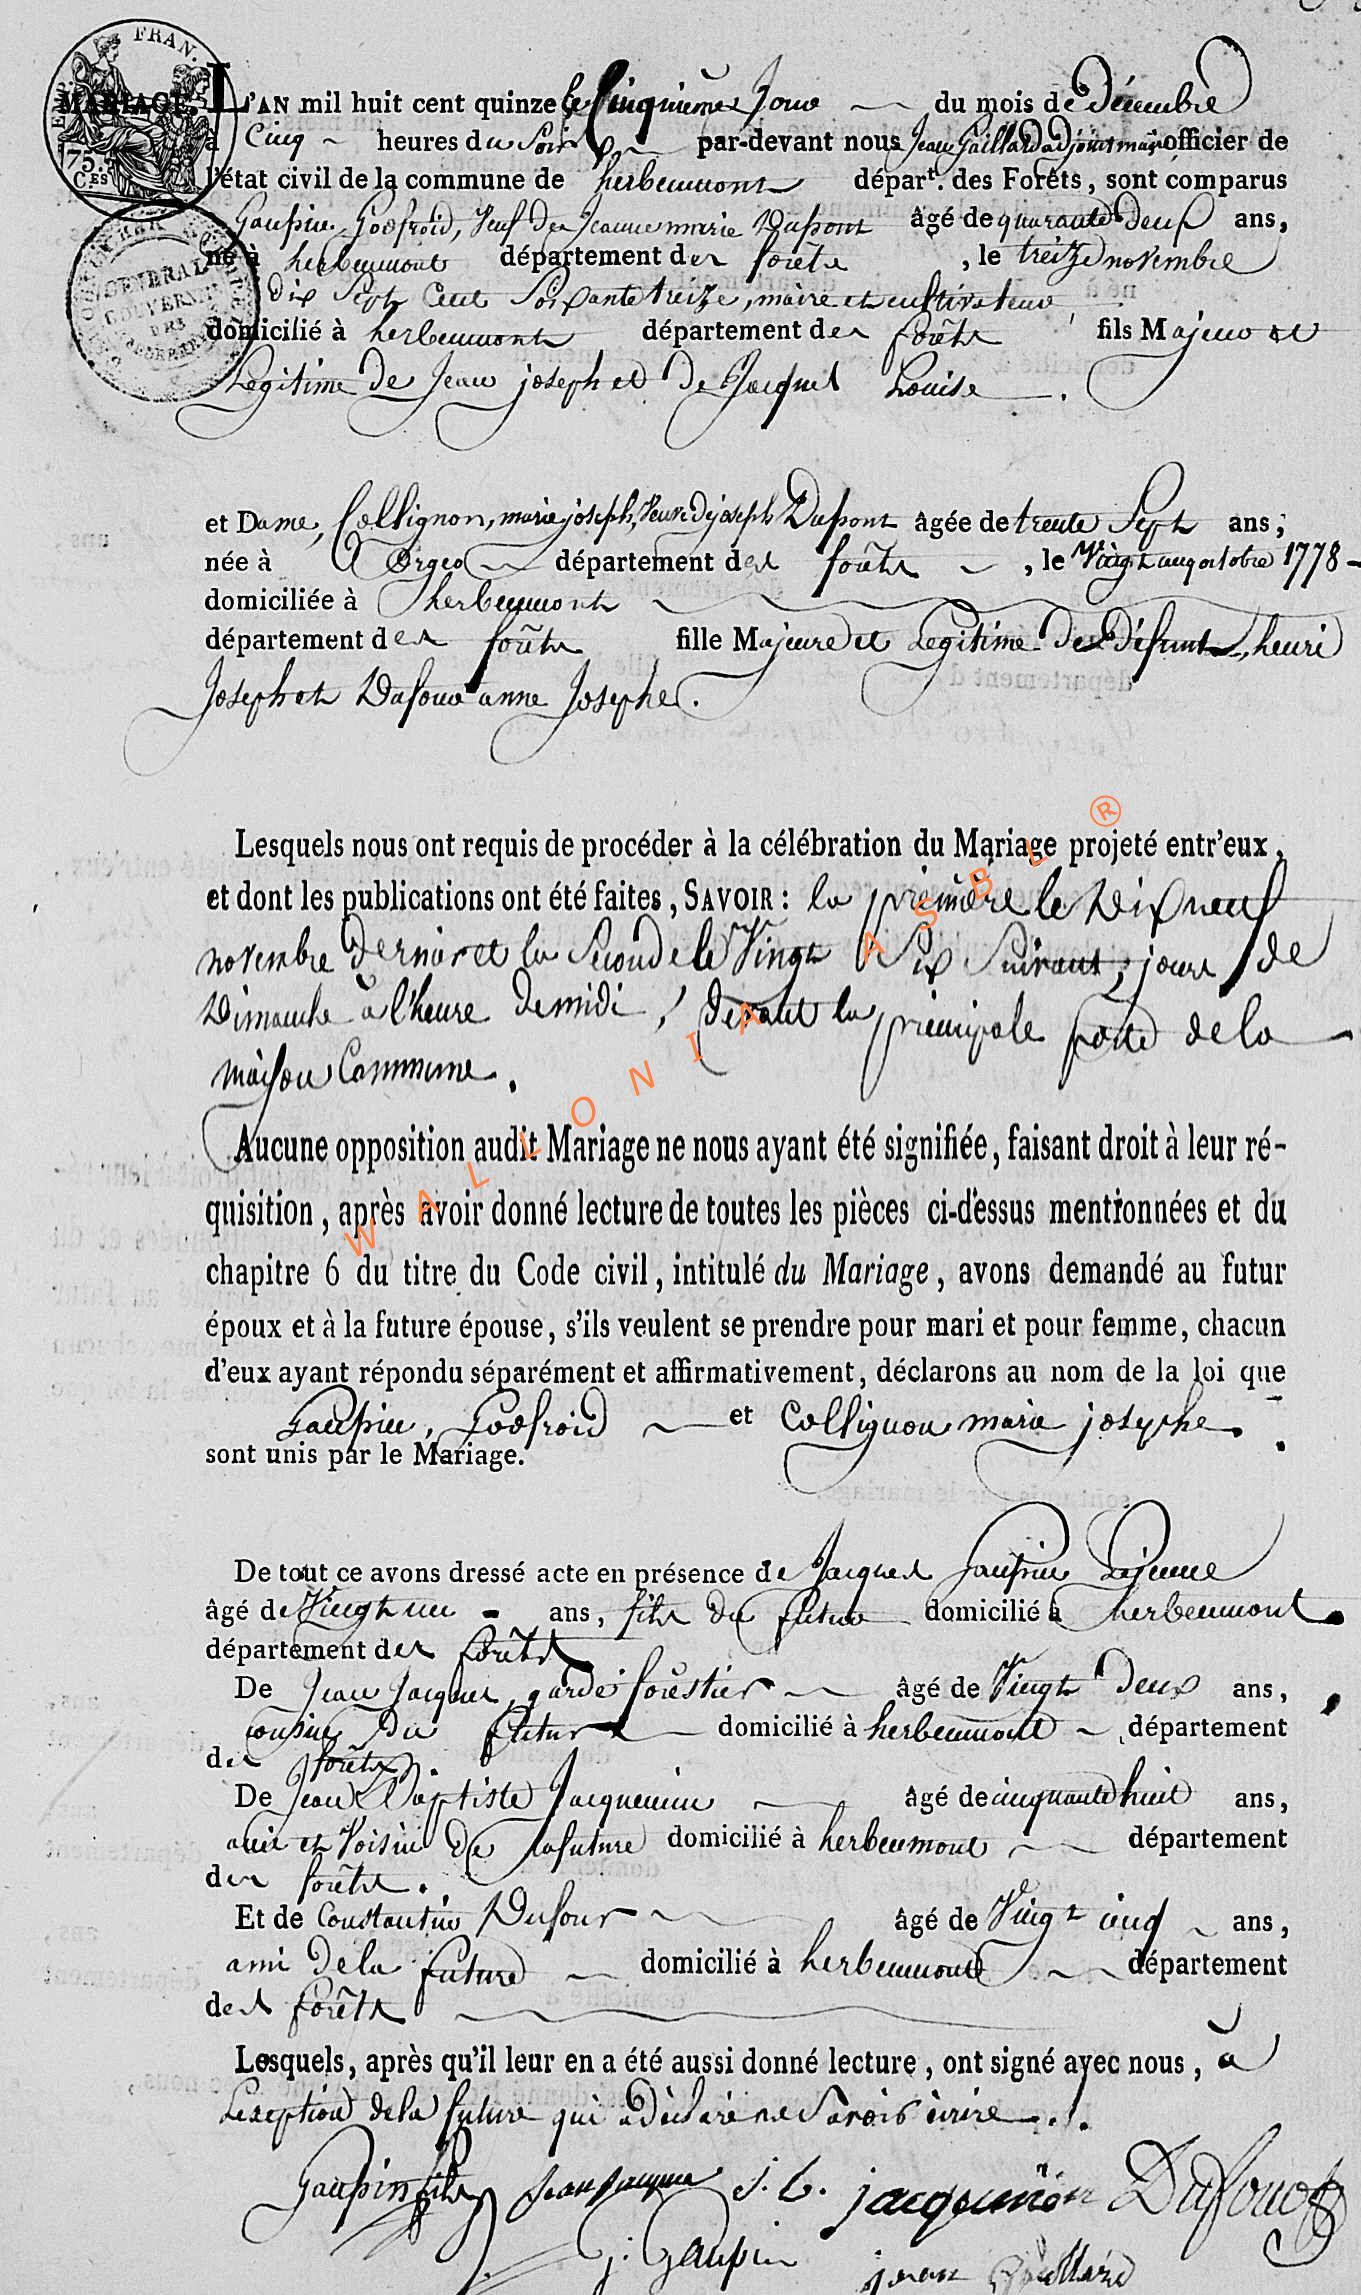 EMP. FRAN.
75.
C.ES
MARIAGE. L'AN mil huit cent quinze le Cinquième Jour du mois de Décembre
à Cinq heures du Soir par-devant nous Jean Gaillard adjoint maire officier de
l'état civil de la commune de herbeumont départ.t des Forêts, sont comparus
Gaupin Godfroid, Veuf de Jeanne marie Dupont âgé de quarante deux ans,
né à herbeumont département des forêts, le treize novembre
dix Sept Cent Soixante treize, maire et cultivateur,
domicilié à herbeumont département des forêts fils Majeur et
Legitime de Jean joseph et de Jacquet Louise.
et Dame, Collignon, marie joseph, Veuve de joseph Dupont âgée de trente Sept ans,
née à Orgeo département des forêts, le Vingt cinq octobre 1778
domiciliée à herbeumont
département des forêts fille Majeure et Legitime des Défunts, henri
Joseph et Dufour anne Josephe.
Lesquels nous ont requis de procéder à la célébration du Mariage projeté entr'eux,
et dont les publications ont été faites, SAVOIR : la première le Dix neuf
novembre dernier et la Seconde le Vingt Six Suivant, jours de
Dimanche à l'heure de midi, devant la principale porte de la
maison Commune.
Aucune opposition audit Mariage ne nous ayant été signifiée, faisant droit à leur ré-
quisition, après avoir donné lecture de toutes les pièces ci-dessus mentionnées et du
chapitre 6 du titre du Code civil, intitulé du Mariage, avons demandé au futur
époux et à la future épouse, s'ils veulent se prendre pour mari et pour femme, chacun
d'eux ayant répondu séparément et affirmativement, déclarons au nom de la loi que
Gaupin, Godfroid et Collignon marie josephe.
sont unis par le Mariage.
De tout ce avons dressé acte en présence de Jacques Gaupin Lejeune
âgé de Vingt un ans, fils du futur domicilié à herbeumont
département des forêts
De Jean Jacques, garde forestier âgé de Vingt Deux ans,
cousin Du futur domicilié à herbeumont département
des forêts.
De Jean Baptiste Jacquemin âgé de cinquante huit ans,
ami et Voisin de la future domicilié à herbeumont département
des forêts.
Et de Constantin Dufour âgé de Vingt cinq ans,
ami de la future domicilié à herbeumont département
des forêts
Lesquels, après qu'il leur en a été aussi donné lecture, ont signé avec nous, à
L'exeption de la future qui a déclaré ne Savoir écrire.
Gaupin fils Jean jacques j. b. jacquemin Dufour
j. Gaupin jean Gaillard
WALLONIA ASBL ®